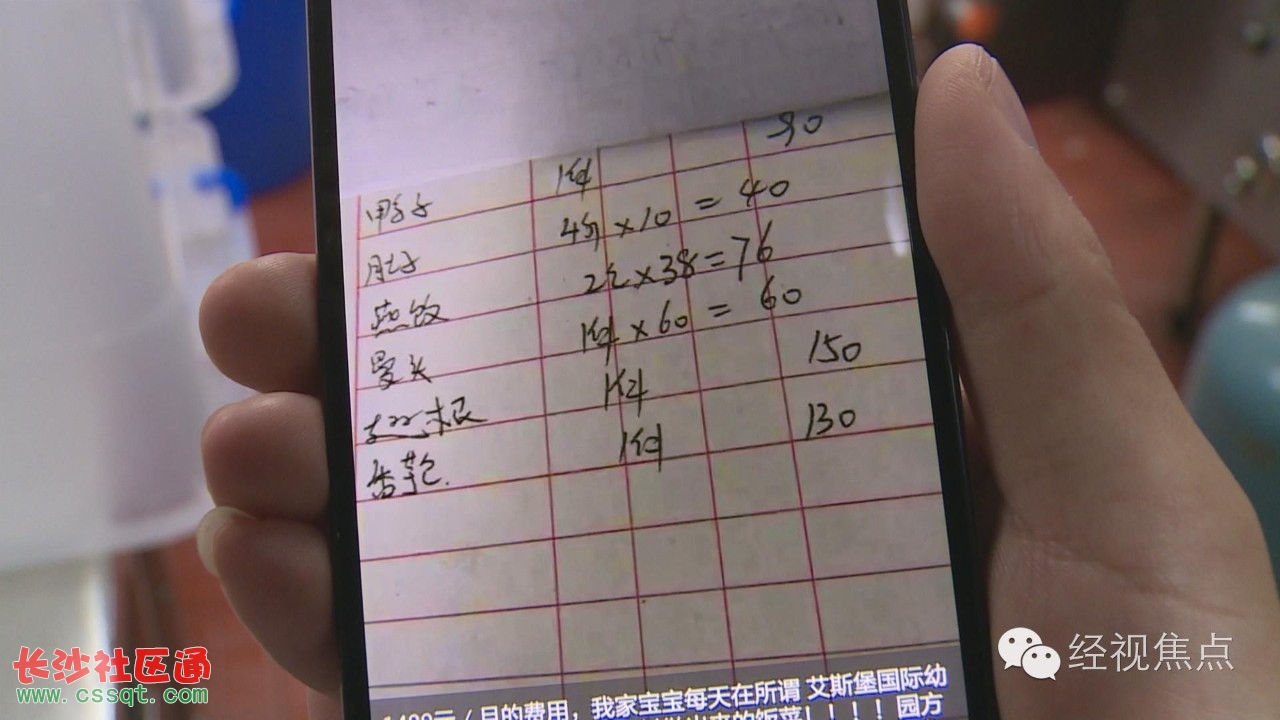 鸭子 1件 90
肚子 4斤×10=40
蒸饺 2包×38=76
曼头 1件×60=60
1件 150
香芋包. 1件 130
元/月的费用，我家宝宝每天在所谓 艾斯堡国际幼
做出来的饭菜！！！！园方
经视焦点
长沙社区通
www.cssqt.com